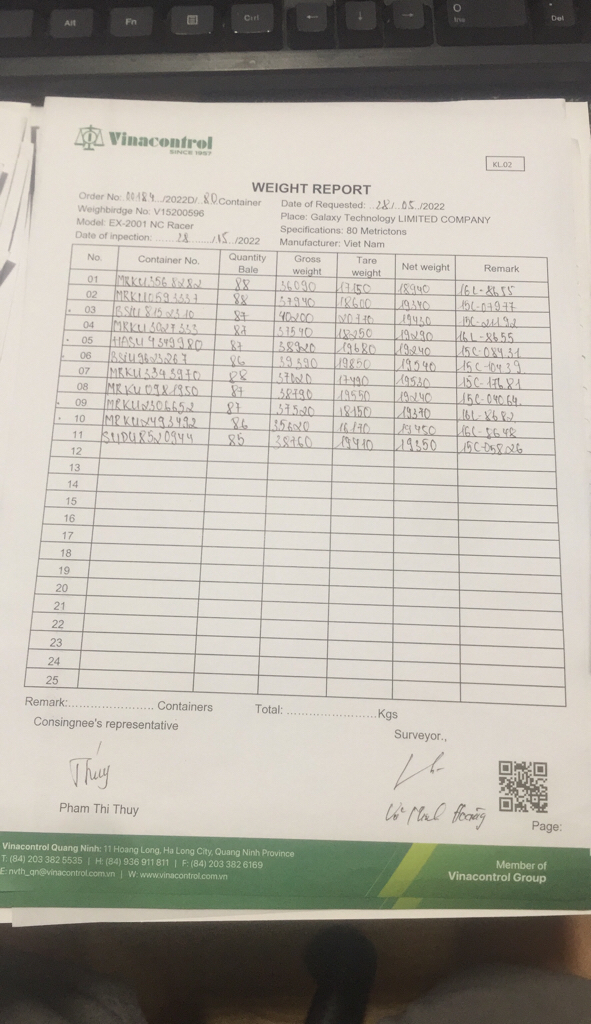 Alt Fn Ctrl ← ↓ → 0 Ins . Del
Vinacontrol
SINCE 1957
KL.02
WEIGHT REPORT
Order No: 00184 /2022D/ 80 Container
Date of Requested: 28/ 05 /2022
Weighbirdge No: V15200596
Place: Galaxy Technology LIMITED COMPANY
Model: EX-2001 NC Racer
Specifications: 80 Metrictons
Date of inpection: 28 /15 /2022
Manufacturer: Viet Nam
No. Container No. Quantity Bale Gross weight Tare weight Net weight Remark
01 MRKU3568282 88 36090 17150 18940 16L-8655
02 88 37940 18600 19340 15C-07977
03 87 40200 20770 19430
04 87 37540 18250 19290 16L-8655
05 HASU4349980 87 38920 19680 19240 15C-08431
06 86 39390 19850 19540 15C-10439
07 MRKU3343970 88 37020 17490 19530 15C-17681
08 MRKU0981950 87 38790 19550 19240 15C-04064
09 MRKU2306652 87 37520 18150 19370 16L-8682
10 MRKU2493492 86 35620 16170 19450 16L-8648
11 SUDU8520944 85 38760 19410 19350 15C-05826
12
13
14
15
16
17
18
19
20
21
22
23
24
25
Remark:........................ Containers Total: ........................Kgs
Consingnee's representative
Surveyor.,
Thúy
Pham Thi Thuy
Page:
Vinacontrol Quang Ninh: 11 Hoang Long, Ha Long City, Quang Ninh Province
T: (84) 203 382 5535 | H: (84) 936 911 811 | F: (84) 203 382 6169
E: nvth_qn@vinacontrol.com.vn | W: www.vinacontrol.com.vn
Member of
Vinacontrol Group